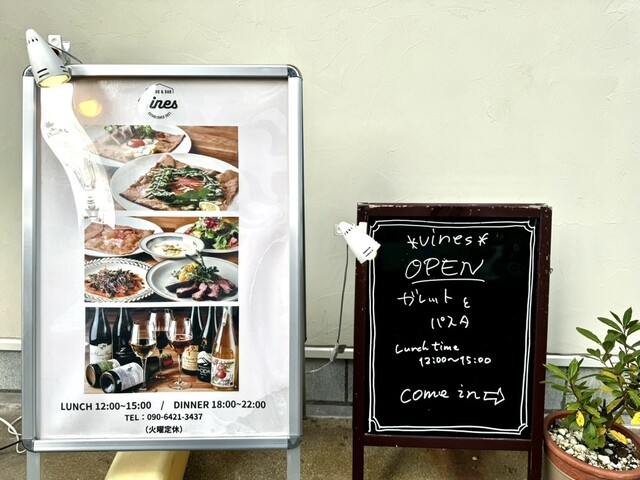 & BAR
ines
LUNCH 12:00~15:00 / DINNER 18:00~22:00
TEL：090-6421-3437
（火曜定休）
*vines*
OPEN
ガレット &
パスタ
Lunch time
12:00~15:00
come in⇨